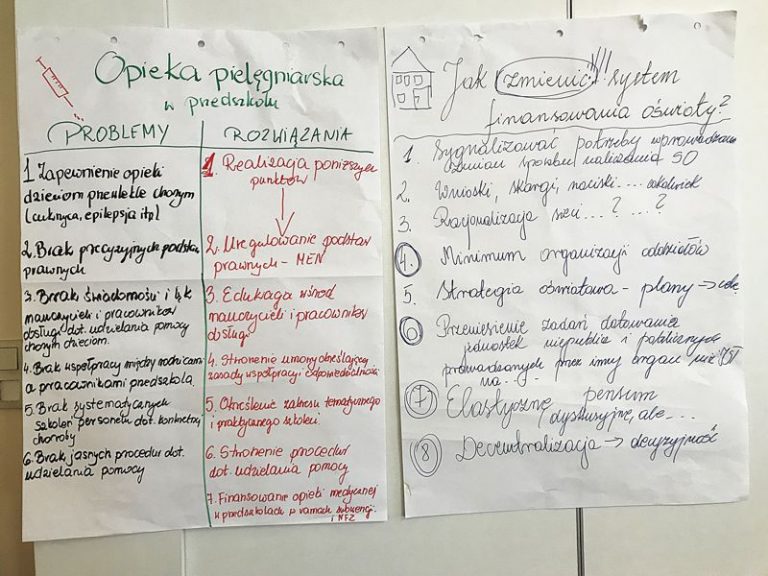 Opieka pielęgniarska
w przedszkolu
PROBLEMY
1. Zapewnienie opieki
dzieciom przewlekle chorym
(cukrzyca, epilepsja itp)
2. Brak precyzyjnych podstaw
prawnych
3. Brak świadomości i lęk
nauczycieli i pracowników
obsługi dot. udzielania pomocy
chorym dzieciom.
4. Brak współpracy między rodzicami
a pracownikami przedszkola
5. Brak systematycznych
szkoleń personelu dot. konkretnej
choroby
6. Brak jasnych procedur dot.
udzielania pomocy
ROZWIĄZANIA
1. Realizacja poniższych
punktów
2. Uregulowanie podstaw
prawnych - MEN
3. Edukacja wśród
nauczycieli i pracowników
obsługi
4. Stworzenie umowy określającej
zasady współpracy i odpowiedzialności
5. Określenie zakresu tematycznego
i praktycznego szkoleń
6. Stworzenie procedur
dot. udzielania pomocy
7. Finansowanie opieki medycznej
w przedszkolach w ramach subwencji
i NFZ
Jak zmienić!!!! system
finansowania oświaty?
1. Sygnalizować potrzeby wprowadzania
zmian sposobu naliczania SO
2. Wnioski, skargi, naciski....
3. Racjonalizacja sieci...? ...?
4. Minimum organizacji oddziałów
5. Strategia oświatowa - plany → cele
6. Przeniesienie zadań dotowania
jednostek niepublicz i publicznych
prowadzonych przez inny organ niż JST
na...
7. Elastyczne pensum
dyskusyjne, ale....
8. Decentralizacja → decyzyjność